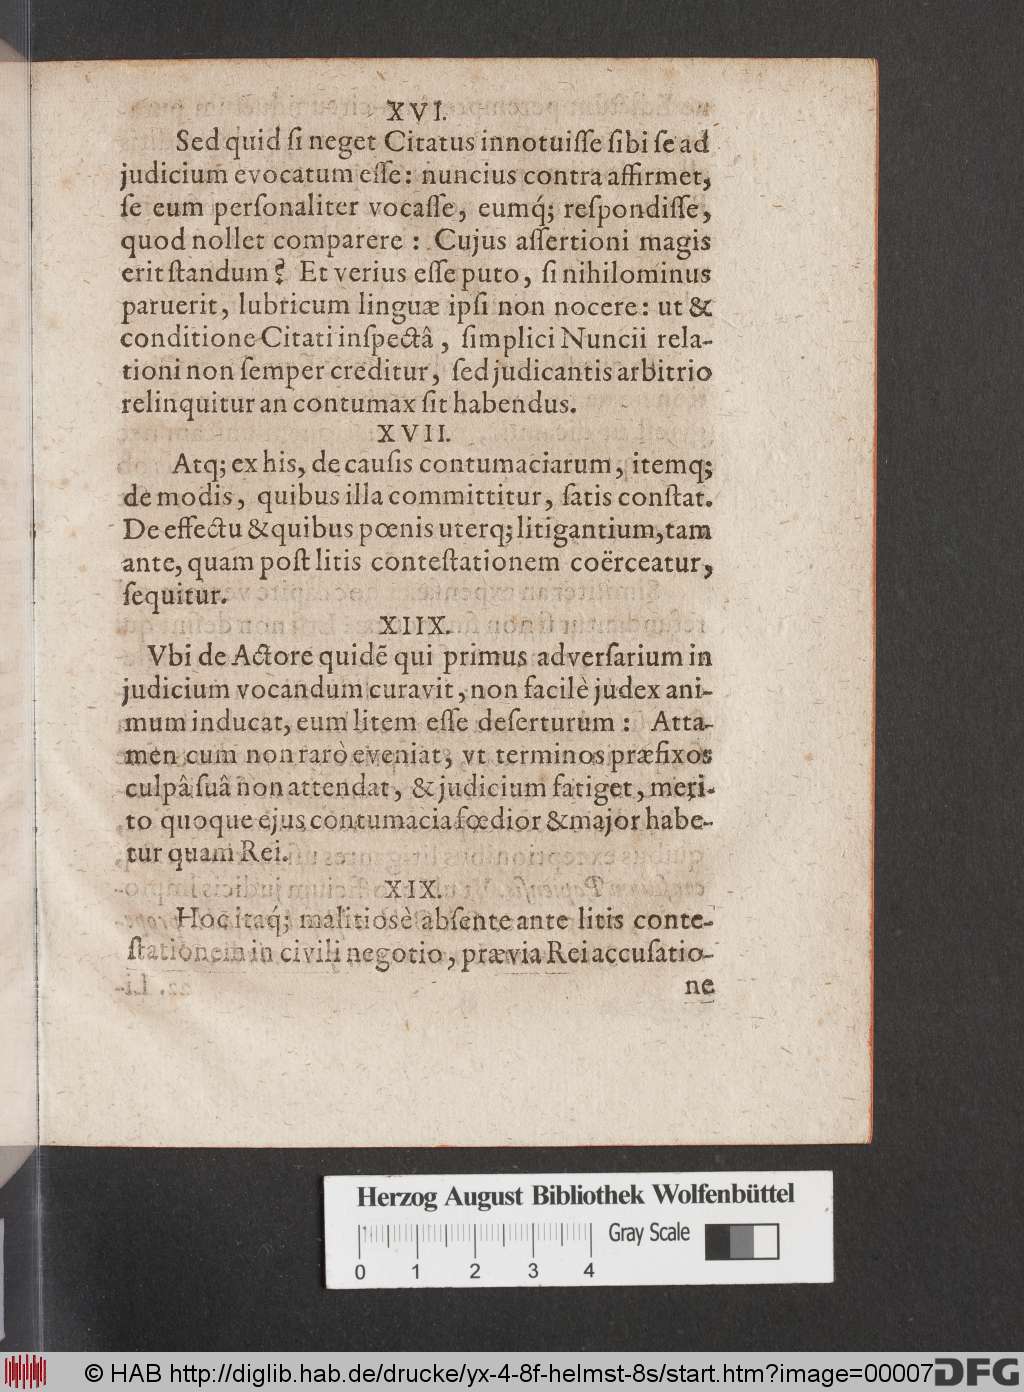 XVI.
Sed quid ſi neget Citatus innotuiſſe ſibi ſe ad
judicium evocatum eſſe: nuncius contra affirmet,
ſe eum perſonaliter vocaſſe, eumq́; reſpondiſſe,
quod nollet comparere : Cujus aſſertioni magis
erit ſtandum? Et verius eſſe puto, ſi nihilominus
paruerit, lubricum linguæ ipſi non nocere: ut &
conditione Citati inſpectâ, ſimplici Nuncii rela-
tioni non ſemper creditur, ſed judicantis arbitrio
relinquitur an contumax ſit habendus.
XVII.
Atq; ex his, de cauſis contumaciarum, itemq;
de modis, quibus illa committitur, ſatis conſtat.
De effectu & quibus pœnis uterq; litigantium, tam
ante, quam poſt litis conteſtationem coërceatur,
ſequitur.
XIIX.
Vbi de Actore quidẽ qui primus adverſarium in
judicium vocandum curavit, non facilè judex ani-
mum inducat, eum litem eſſe deſerturum : Atta-
men cum non rarò eveniat, vt terminos præfixos
culpâ ſuâ non attendat, & judicium fatiget, meri-
to quoque ejus contumacia fœdior & major habe-
tur quam Rei.
XIX.
Hoc itaq́; malitiosè abſente ante litis conte-
ſtationem in civili negotio, prævia Rei accuſatio-
ne
Herzog August Bibliothek Wolfenbüttel
Gray Scale
0 1 2 3 4
© HAB http://diglib.hab.de/drucke/yx-4-8f-helmst-8s/start.htm?image=00007
DFG